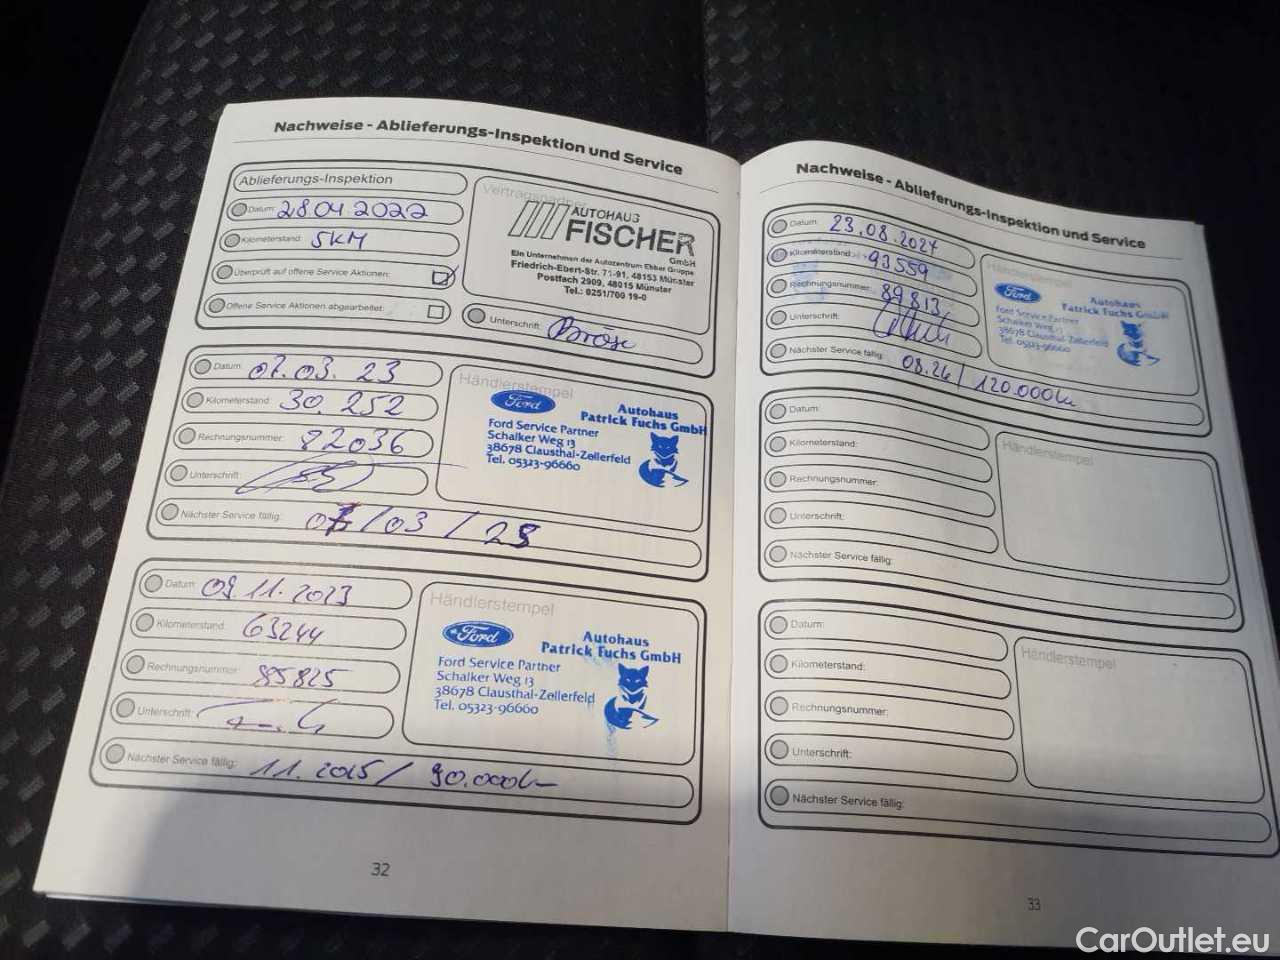 Nachweise - Ablieferungs-Inspektion und Service
Ablieferungs-Inspektion
Datum: 28.04.2022
Kilometerstand: 5KM
Überprüft auf offene Service Aktionen:
Offene Service Aktionen abgearbeitet:
Vertragspartner
AUTOHAUS
FISCHER
GmbH
Ein Unternehmen der Autozentrum Ebber Gruppe
Friedrich-Ebert-Str. 71-91, 48153 Münster
Postfach 2909, 48015 Münster
Tel.: 0251/700 19-0
Unterschrift:
Datum: 07.03.23
Kilometerstand: 30.252
Rechnungsnummer: 82036
Unterschrift:
Nächster Service fällig: 07/03/25
Händlerstempel
Ford
Autohaus
Patrick Fuchs GmbH
Ford Service Partner
Schalker Weg 13
38678 Clausthal-Zellerfeld
Tel. 05323-96660
Datum: 09.11.2023
Kilometerstand: 63244
Rechnungsnummer: 85825
Unterschrift:
Nächster Service fällig: 11.2025/90.000km
Händlerstempel
Ford
Autohaus
Patrick Fuchs GmbH
Ford Service Partner
Schalker Weg 13
38678 Clausthal-Zellerfeld
Tel. 05323-96660
32
Nachweise - Ablieferungs-Inspektion und Service
Datum: 23.08.2024
Kilometerstand: 93559
Rechnungsnummer: 89813
Unterschrift:
Nächster Service fällig: 08.26/120.000km
Händlerstempel
Ford
Autohaus
Patrick Fuchs GmbH
Ford Service Partner
Schalker Weg 13
38678 Clausthal-Zellerfeld
Tel. 05323-96660
Datum:
Kilometerstand:
Rechnungsnummer:
Unterschrift:
Nächster Service fällig:
Händlerstempel
Datum:
Kilometerstand:
Rechnungsnummer:
Unterschrift:
Nächster Service fällig:
Händlerstempel
33
CarOutlet.eu